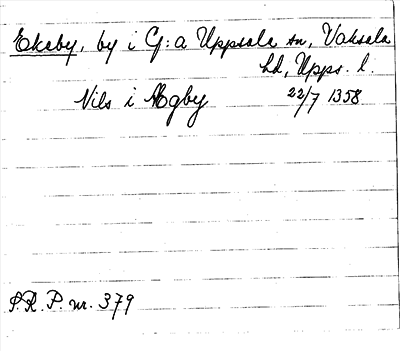 Ekeby, by i G:a Uppsala sn, Vaksala
hd, Upps. l.
Nils i 22/7 1358
S.R.P. nr. 379